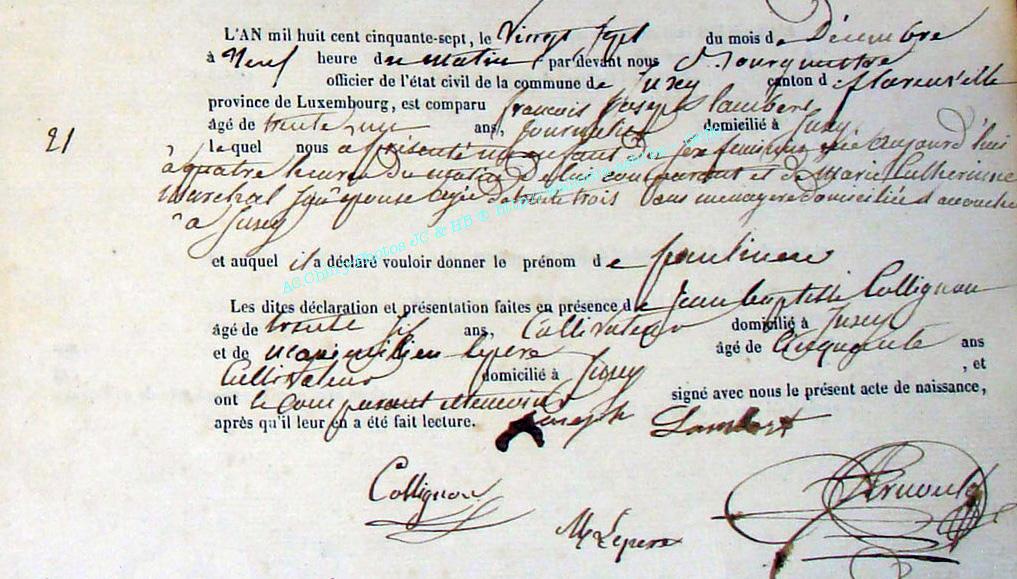 L'AN mil huit cent cinquante-sept, le Vingt sept du mois de Décembre
à Neuf heure du matin par devant nous
officier de l'état civil de la commune de Jusey canton d florenville
province de Luxembourg, est comparu francois joseph Lambert
âgé de trente ans, journalier domicilié à Jusey
21
le quel nous a présenté un enfant du sexe feminin née aujourd'hui
à quatre heures du matin de lui comparant et de Marie Catherinne
Marechal son épouse agée de trente trois ans menagere domiciliée et accouchée
à Jusey
et auquel il a déclaré vouloir donner le prénom de
Les dites déclaration et présentation faites en présence de Jean baptiste Collignon
âgé de trente six ans, Cultivateur domicilié à Jusey
et de Lepere âgé de Cinquante ans
Cultivateur domicilié à Jusey , et
ont le comparant et temoins signé avec nous le présent acte de naissance,
après qu'il leur en a été fait lecture. Joseph Lambert
Collignon
M Lepere
AC Chiny photos JC & HB ©